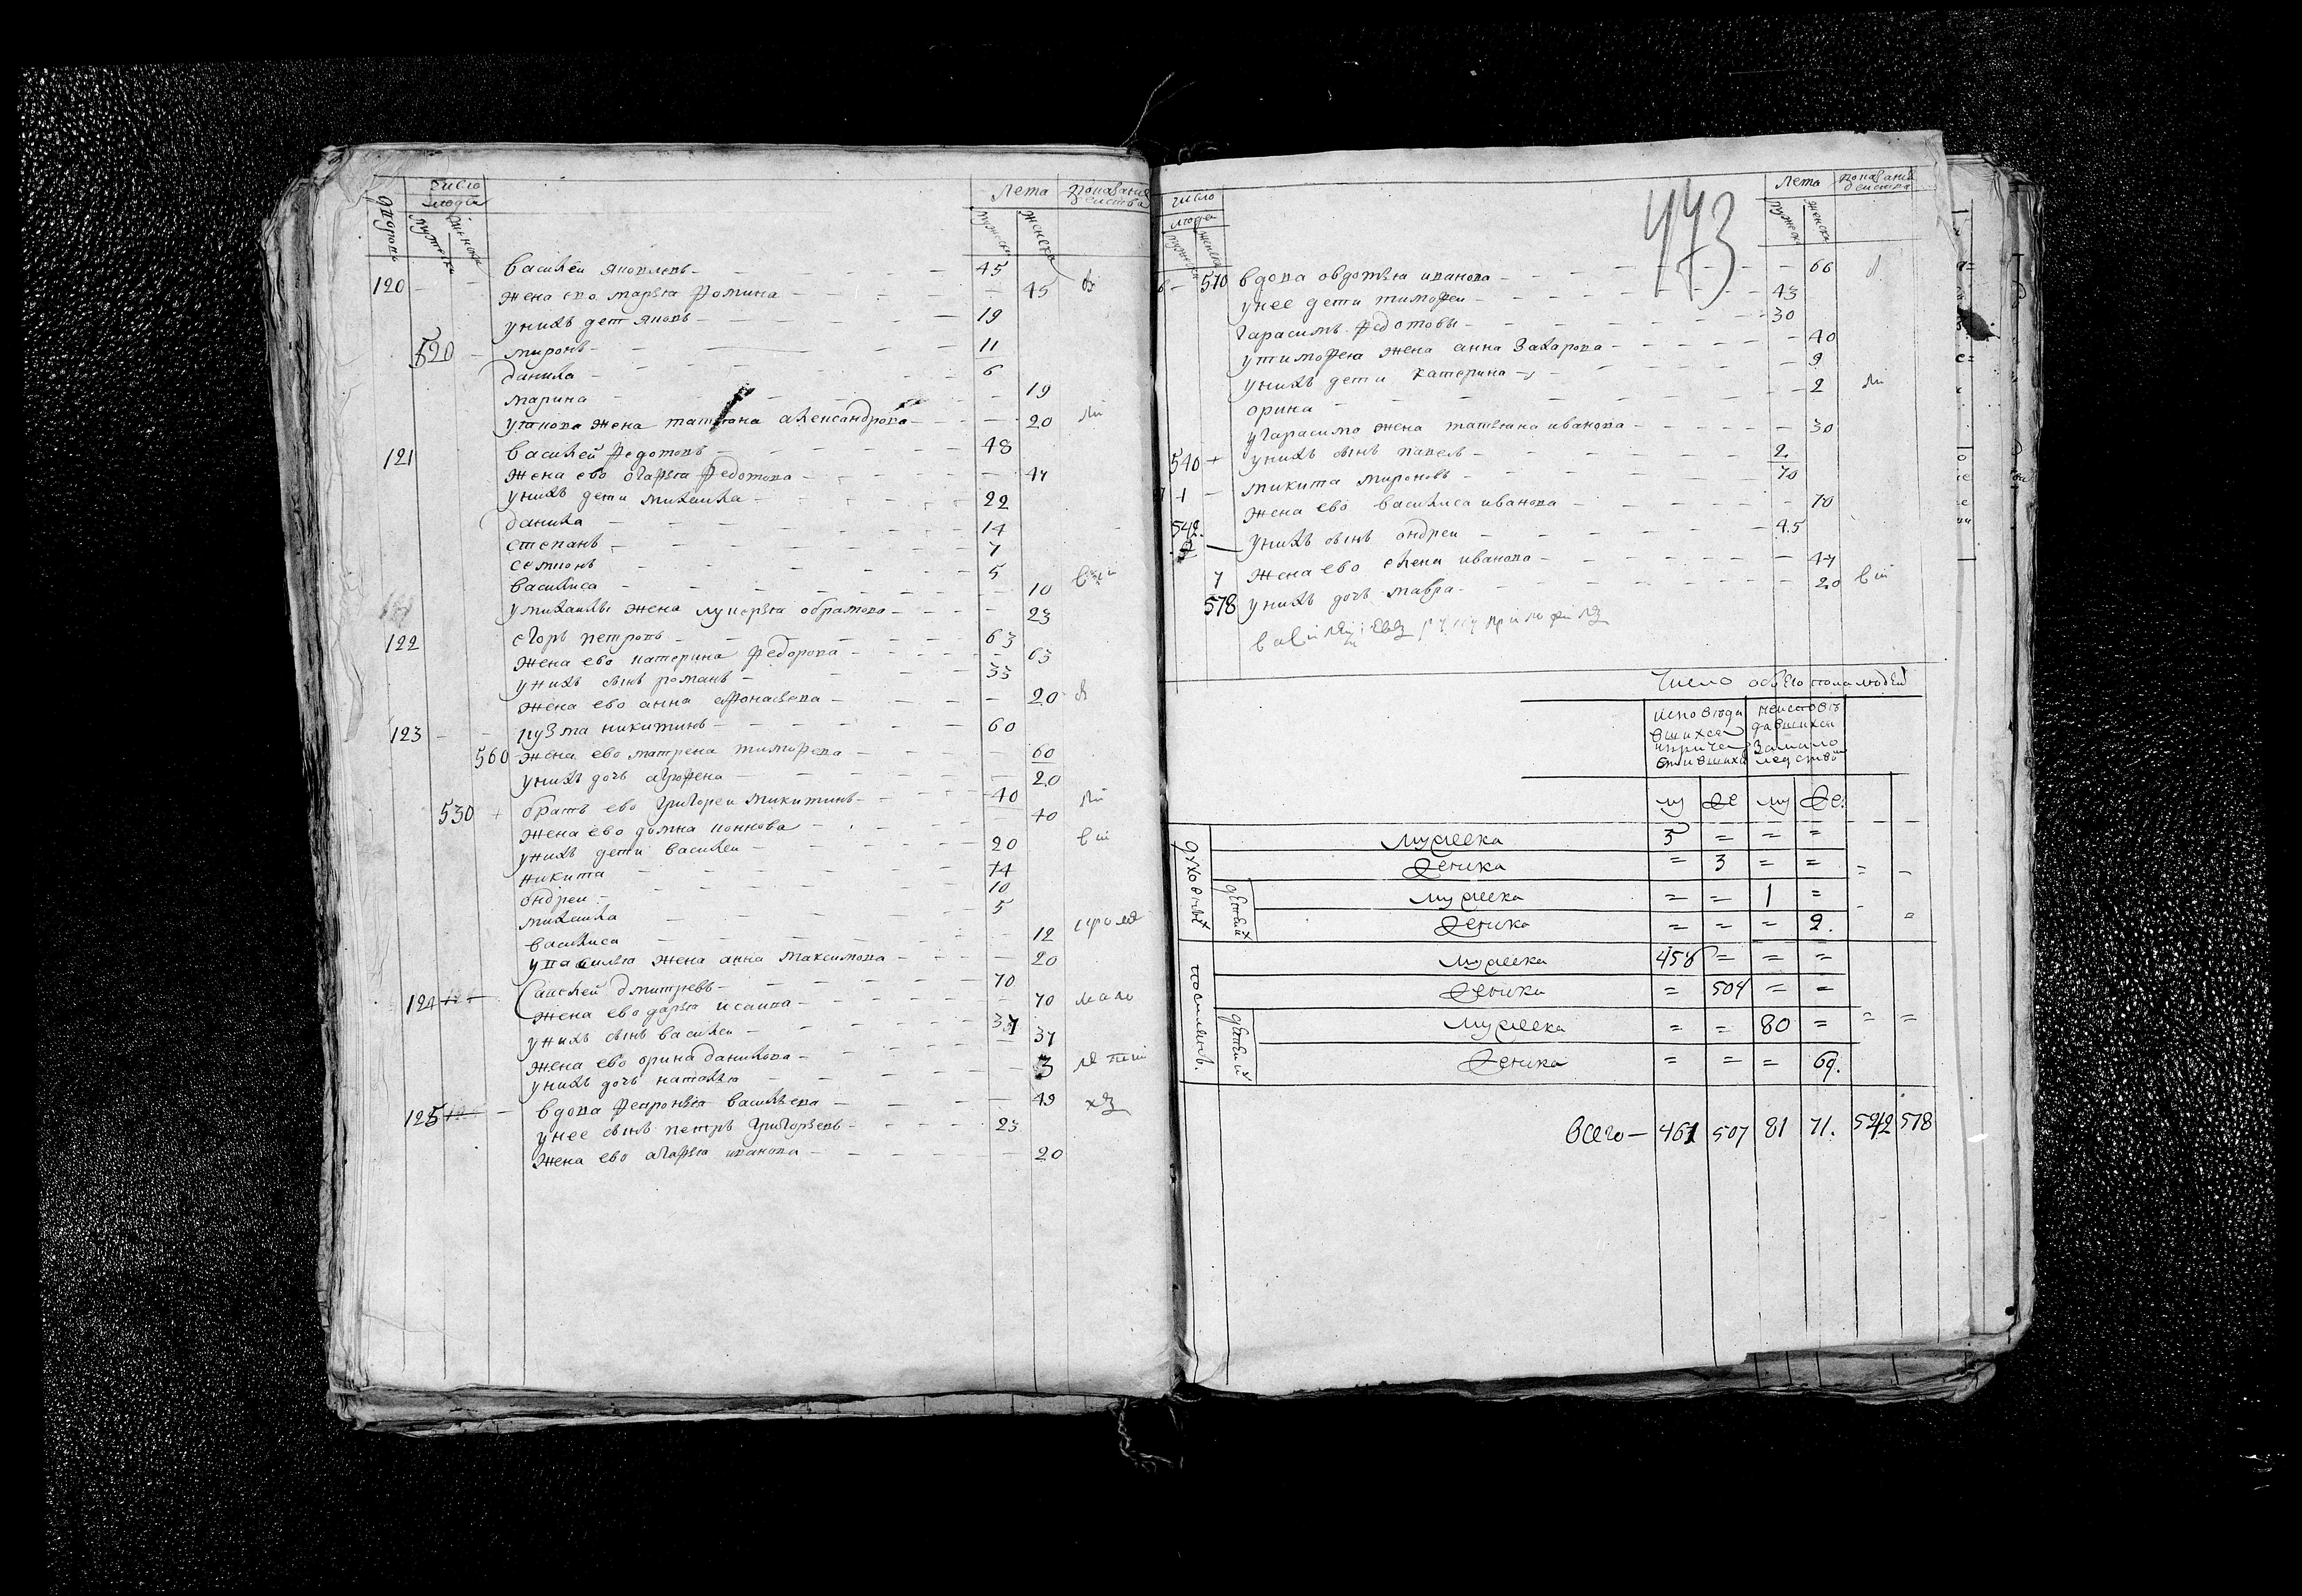 число
людей
дворовъ
мужеска
женска
Лета
показания
действа
мужеска
женска
василей яковлевъ 45
120 жена ево марѣя фомина 45
унихъ дет яковъ 19
520 миронъ 11
данила 6
марина 19
уякова жена татьяна александрова 20
121 василей федотовъ 48
жена ево огафѣя федотова 47
унихъ дети михаила 22
данила 14
степанъ 7
семионъ 5
василиса 10
умихаилы жена лукерѣя обрамова 23
122 егоръ петровъ 63
жена ево катерина федорова 63
унихъ сынъ романъ 33
жена ево анна афонасьева 20
123 кузма никитинъ 60
560 жена ево матрена тимофева 60
унихъ дочь аграфена 20
530 братъ ево григореи микитинъ 40
жена ево домна кононова 40
унихъ дети василеи 20
никита 14
ондреи 10
михаила 5
василиса 12
увасилья жена анна максимова 20
124 василей дмитревъ 70
жена ево дарѣя исаива 70 мало
унихъ сынъ василеи 37
жена ево орина данилова 37
унихъ дочь наталѣя 3
125 вдова феднронѣя василѣева 49
унее сынъ петръ григорѣевъ 23
жена ево агафѣя иванова 20
473
число
людей
мужеска
женска
Лета
показания
действа
мужеска
женска
570 вдова овдотѣя иванова 66
унее дети тимофеи 43
гарасимъ федотовы 30
утимофея жена анна захарова 40
унихъ дети катерина 9
орина 2
угарасима жена татьяна иванова 30
540 унихъ сынъ павелъ 2
1 микита мироновъ 70
жена ево василиса иванова 70
542 унихъ сынъ ондреи 45
7 жена ево елена иванова 47
578 унихъ дочь мавра 20
Число обоего пола людей
исповеда
вшихся
ипричас
тившихся
неисповѣ
давшихся
замало
летствомъ
му же му же
духовныхъ мужеска 5 = = =
женска = 3 = =
детей ихъ мужеска = = 1 =
женска = = = 2.
посилянъ. мужеска 456 = = =
женска = 504 = =
детей ихъ мужеска = = 80 =
женска = = = 69.
Всего — 461 507 81 71. 542 578